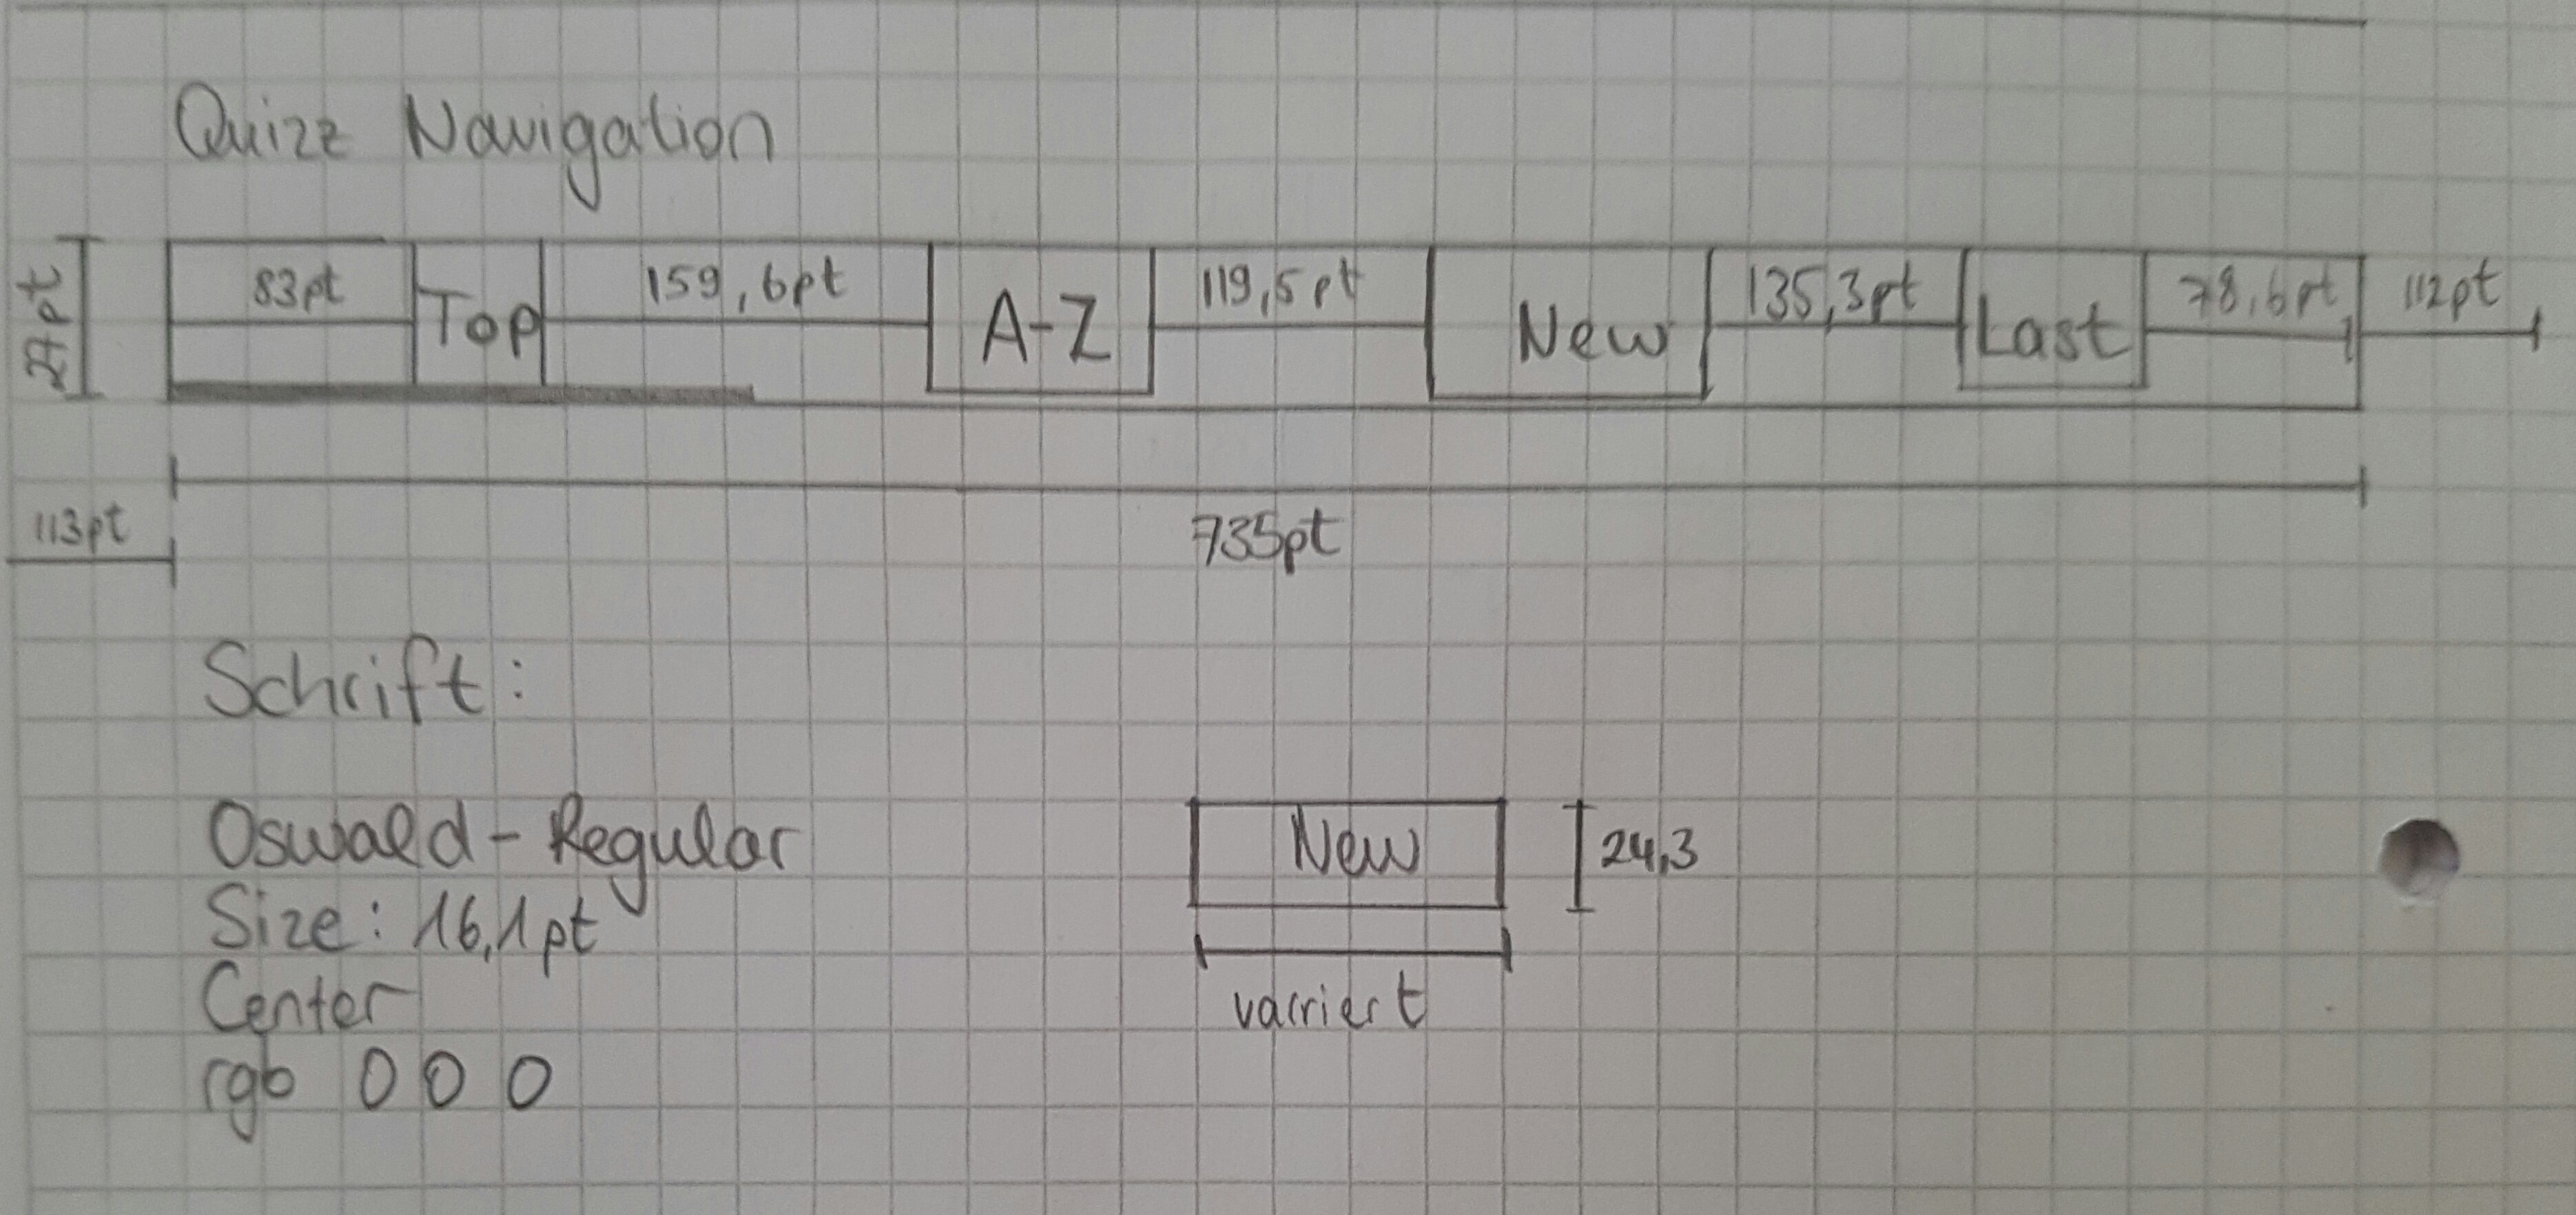 Quizz Navigation
27pt
83pt Top 159,6pt A-Z 119,5pt New 135,3pt Last 78,6pt 112pt
113pt
735pt
Schrift:
Oswald-Regular
Size: 16,1pt
Center
rgb 0 0 0
New
24,3
varriert